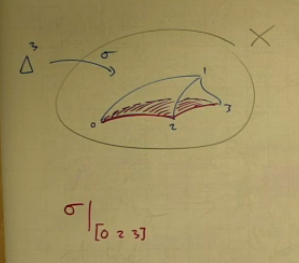 Δ³ σ X
1
0 2 3
σ|[0 2 3]